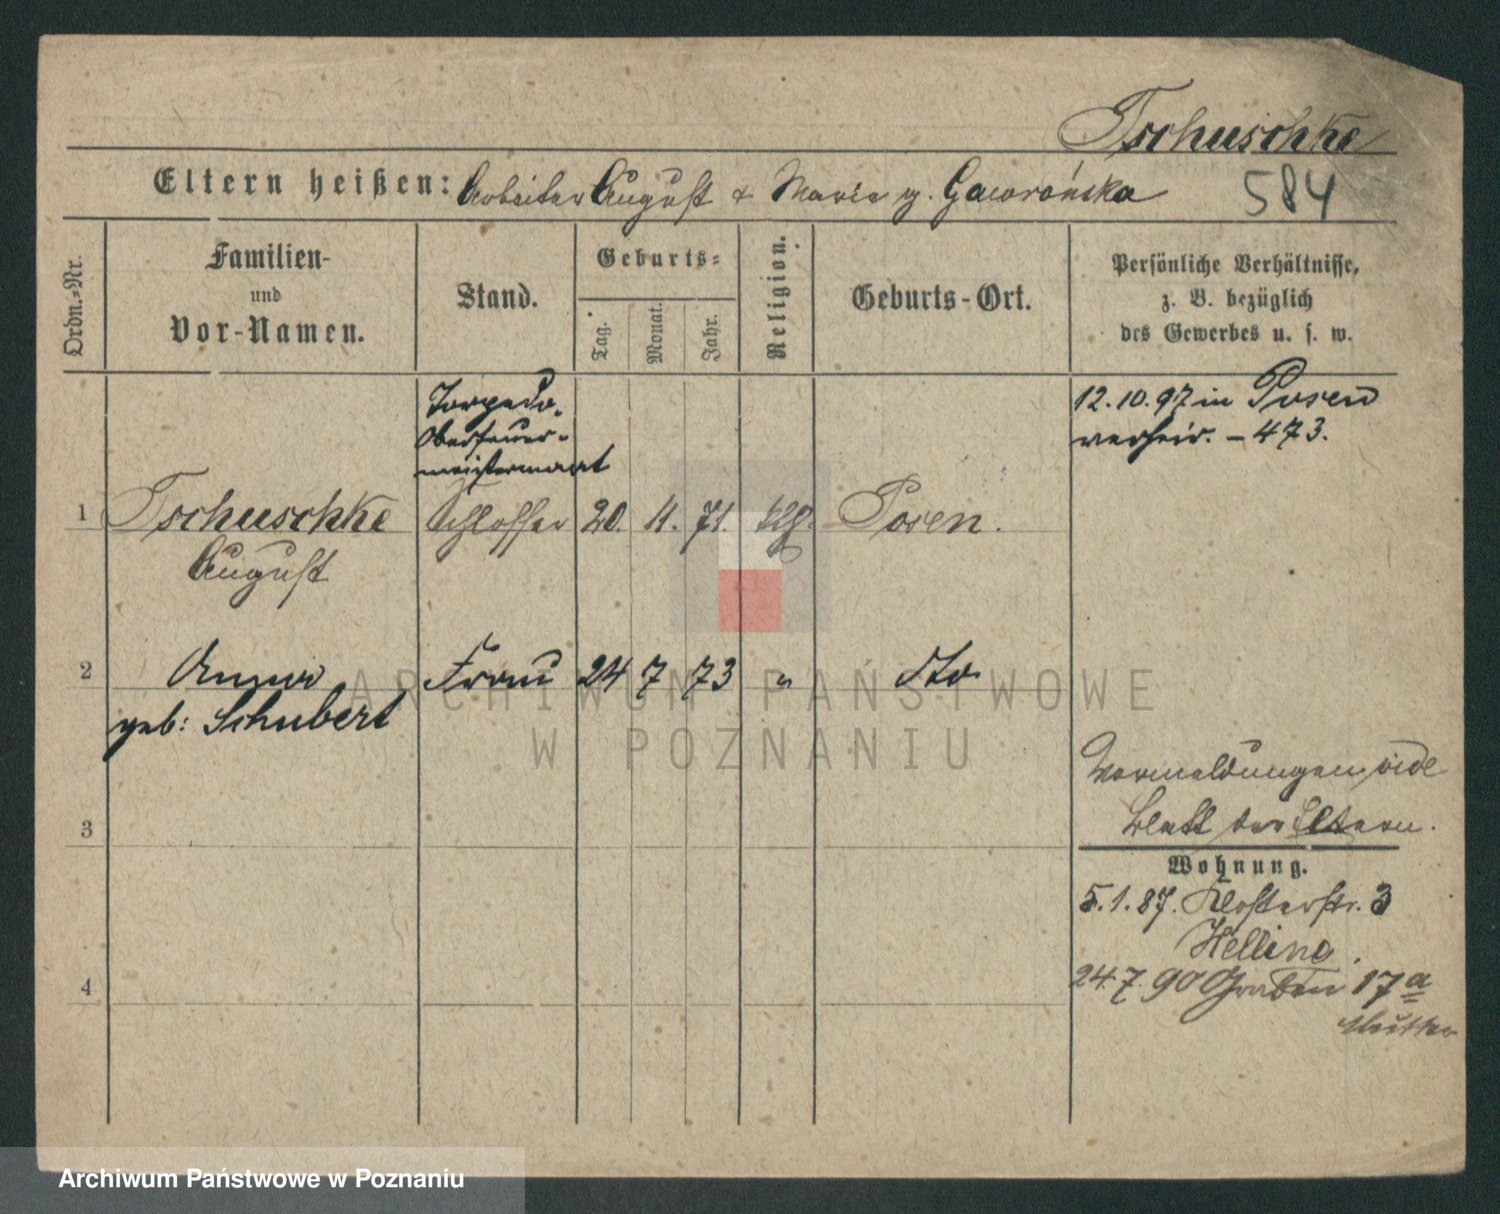 Tschuschke
Eltern heißen: Arbeiter August & Marie g. Gaworońska
584
Ordn.-Nr.
Familien-
und
Vor-Namen.
Stand.
Geburts-
Tag.
Monat.
Jahr.
Religion.
Geburts-Ort.
Persönliche Verhältnisse,
z. B. bezüglich
des Gewerbes u. s. w.
Torpedo-
Oberfeuer-
meistersmaat
12.10.97 in Posen
verheir. – 473.
1 Tschuschke Schlosser 20. 11. 71. kth. Posen.
August
2 Anna Frau 24 7 73 " dto.
geb: Schubert
Vormeldungen vide
Blatt der Eltern.
3
Wohnung.
5.1.87. Klosterstr. 3
Helling.
4
24.7.90 Graben 17a
Mutter
ARCHIWUM PAŃSTWOWE
W POZNANIU
Archiwum Państwowe w Poznaniu